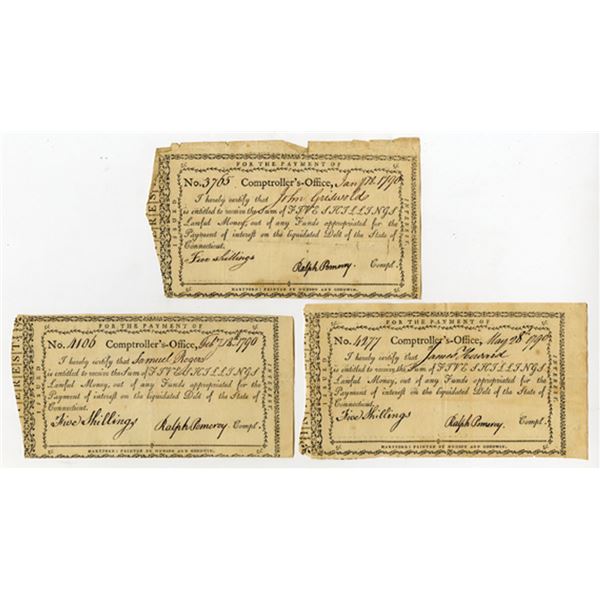 FOR THE PAYMENT OF
No. 3765 Comptroller's-Office, Jany 1790
I hereby certify that John Griswold
is entitled to receive the Sum of FIVE SHILLINGS
Lawful Money, out of any Funds appropriated for the
Payment of interest on the liquidated Debt of the State of
Connecticut.
Five shillings
Ralph Pomeroy Compt.
HARTFORD: PRINTED BY HUDSON AND GOODWIN.
ISSUED
INTEREST
FOR THE PAYMENT OF
No. 4106 Comptroller's-Office, Feby 1790
I hereby certify that Samuel Rogers
is entitled to receive the Sum of FIVE SHILLINGS
Lawful Money, out of any Funds appropriated for the
Payment of interest on the liquidated Debt of the State of
Connecticut.
Five Shillings
Ralph Pomeroy Compt.
HARTFORD: PRINTED BY HUDSON AND GOODWIN.
ISSUED
FOR THE PAYMENT OF
No. 4977 Comptroller's-Office, May 28 1790
I hereby certify that James
is entitled to receive the Sum of FIVE SHILLINGS
Lawful Money, out of any Funds appropriated for the
Payment of interest on the liquidated Debt of the State of
Connecticut.
Five Shillings
Ralph Pomeroy Compt.
HARTFORD: PRINTED BY HUDSON AND GOODWIN.
ISSUED
INTEREST